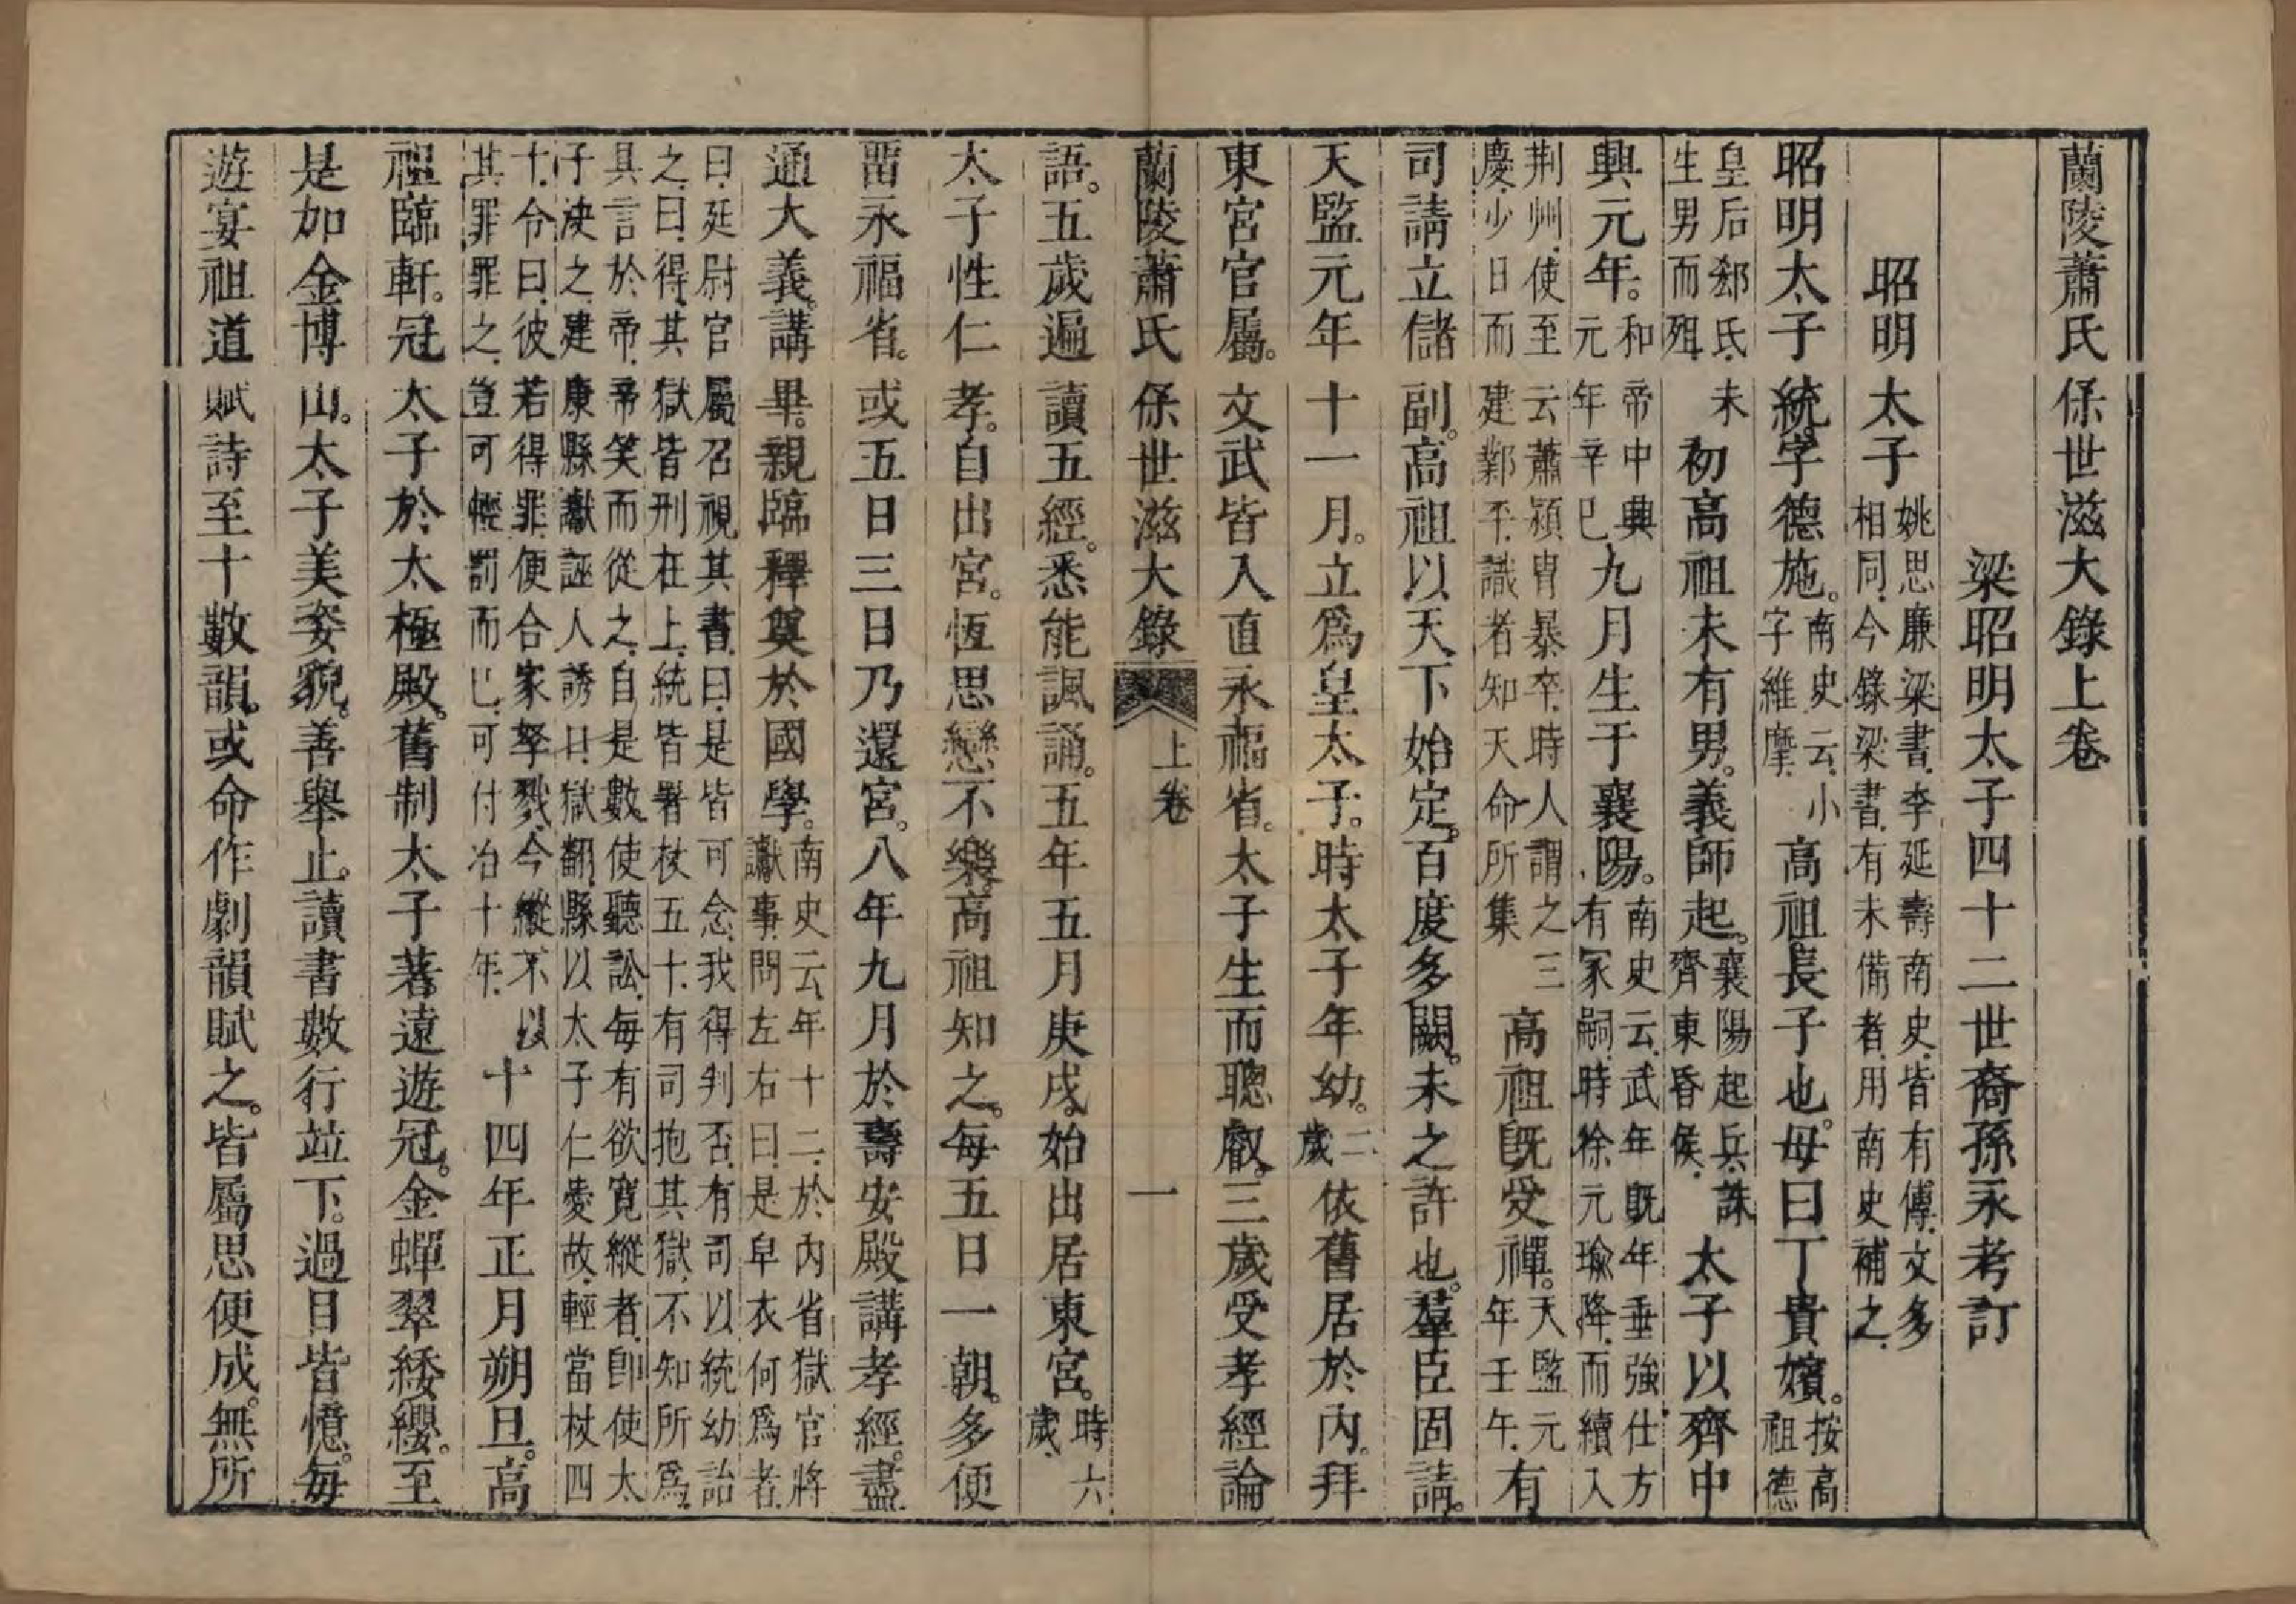 蘭陵蕭氏保世滋大錄上卷
梁昭明太子四十二世裔孫永考訂
昭明太子姚思廉梁書李延壽南史皆有傳文多相同今錄梁書有未備者用南史補之
昭明太子統字德施。南史云小字維摩高祖長子也。母曰丁貴嬪。按高祖德
皇后郗氏未生男而殂初高祖未有男。義師起。襄陽起兵誅齊東昏侯太子以齊中
興元年。和帝中興元年辛巳九月生于襄陽。南史云武年既年垂強仕方有冢嗣時徐元瑜降而續入
荆州使至云蕭穎胄暴卒時人謂之三慶少日而建鄴平識者知天命所集高祖旣受禪。天監元年壬午有
司請立儲副。高祖以天下始定。百度多闕。未之許也。羣臣固請。
天監元年十一月。立爲皇太子。時太子年幼。二歲依舊居於內。拜
東宮官屬。文武皆入直永福省。太子生而聰叡。三歲受孝經論
蘭陵蕭氏保世滋大錄 上卷 一
語。五歲遍讀五經。悉能諷誦。五年五月庚戌。始出居東宮。時六歲
太子性仁孝。自出宮。恆思戀不樂。高祖知之。每五日一朝。多便
畱永福省。或五日三日乃還宮。八年九月於壽安殿講孝經。盡
通大義。講畢。親臨釋奠於國學。南史云年十二於內省獄官將讞事問左右曰是皁衣何爲者
曰廷尉官屬召視其書曰是皆可念我得判否有司以統幼詒之曰得其獄皆刑在上統皆署杖五十有司抱其獄不知所爲
具言於帝帝笑而從之自是數使聽訟每有欲寬縱者卽使太子決之建康縣讞誣人誘口獄翻縣以太子仁愛故輕當杖四
十令曰彼若得罪便合家孥戮今縱不以其罪罪之豈可輕罰而已可付冶十年十四年正月朔旦。高
祖臨軒。冠太子於太極殿。舊制太子著遠遊冠。金蟬翠緌纓。至
是加金博山。太子美姿貌。善舉止。讀書數行竝下。過目皆憶。每
遊宴祖道賦詩至十數韻。或命作劇韻賦之。皆屬思便成。無所